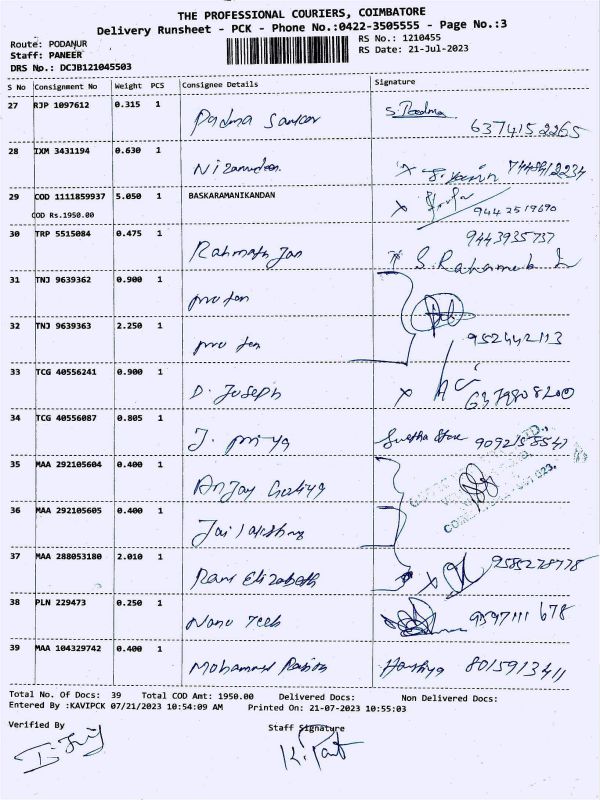 THE PROFESSIONAL COURIERS, COIMBATORE
Delivery Runsheet - PCK - Phone No.:0422-3505555 - Page No.:3
Route: PODANUR
RS No.: 1210455
Staff: PANEER
RS Date: 21-Jul-2023
DRS No.: DCJB121045503
S No Consignment No Weight PCS Consignee Details Signature
27 RJP 1097612 0.315 1 Padma S. Padma
6374152265
28 IXM 3431194 0.630 1 Nizamudeen 7448612234
29 COD 1111859937 5.050 1 BASKARAMANIKANDAN
COD Rs.1950.00 9442519690
30 TRP 5515084 0.475 1 Rahmath Jan 9443935737
31 TNJ 9639362 0.900 1
32 TNJ 9639363 2.250 1 952442113
33 TCG 40556241 0.900 1 D. Joseph 6379808200
34 TCG 40556087 0.805 1 J. priya 9092158547
35 MAA 292105604 0.400 1
36 MAA 292105605 0.400 1
37 MAA 288053180 2.010 1 Rani Elizabeth 9585278778
38 PLN 229473 0.250 1 Nano Tech 9597111 678
39 MAA 104329742 0.400 1 Mohammed 8015913411
Total No. Of Docs: 39 Total COD Amt: 1950.00 Delivered Docs: Non Delivered Docs:
Entered By :KAVIPCK 07/21/2023 10:54:09 AM Printed On: 21-07-2023 10:55:03
Verified By Staff Signature